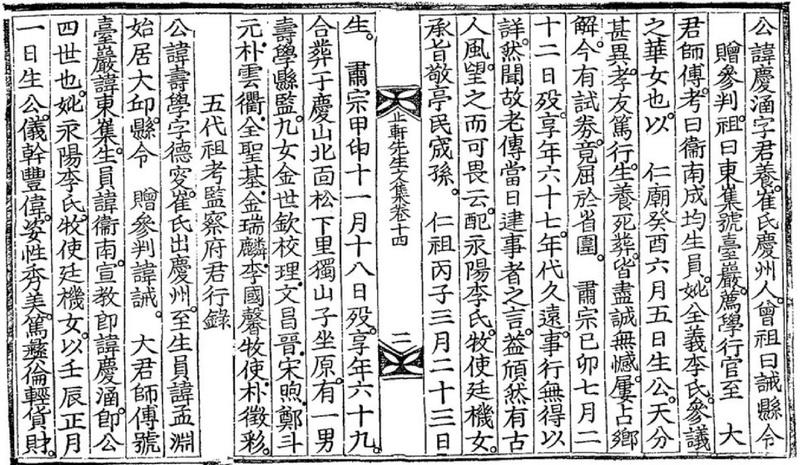 公諱慶涵字君養。崔氏慶州人。曾祖曰誠縣令
贈參判。祖曰東㠍號臺巖。薦學行官至 大
君師傅。考曰衛南成均生員。妣全義李氏。參議
之華女也。以 仁廟癸酉六月五日生公。天分
甚異。孝友篤行。生養死葬。皆盡誠無憾。屢占鄉
解。今有試券。竟屈於省圍。 肅宗己卯七月二
十二日歿。享年六十七。年代久遠。事行無得以
詳。然聞故老傳當日逮事者之言。益頎然有古
人風。望之而可畏云。配永陽李氏。牧使廷機女。
承旨敬亭民宬孫。 仁祖丙子三月二十三日
止軒先生文集卷十四 二
生。 肅宗甲申十一月十八日歿。享年六十九。
合葬于慶山北面松下里獨山子坐原。有一男
壽學縣監。九女金世欽校理。文昌晉。宋煦。鄭斗
元。朴雲衢。全聖基。金瑞麟。李國馨牧使。朴徵彩。
五代祖考監察府君行錄
公諱壽學字德叜。崔氏出慶州。至生員諱孟淵
始居大邱。縣令 贈參判諱誠。 大君師傅號
臺巖諱東㠍。生員諱衛南。宣敎卽諱慶涵。卽公
四世也。妣永陽李氏。牧使廷機女。以壬辰正月
一日生公。儀幹豐偉。姿性秀美。篤彝倫輕貨財。